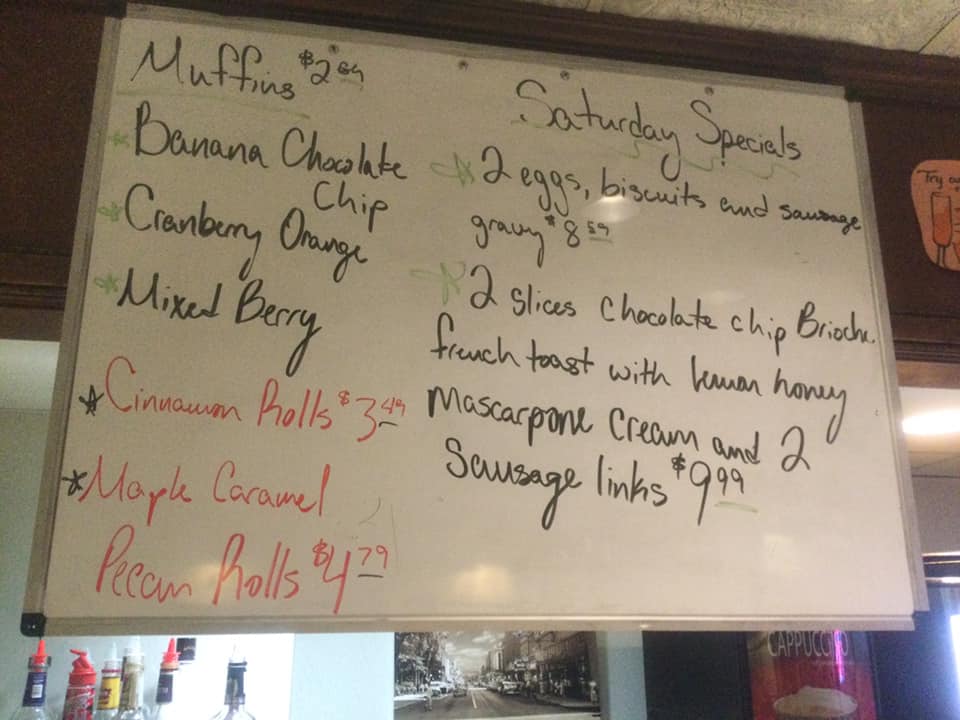 Muffins $2
Banana Chocolate
Chip
Cranberry Orange
Mixed Berry
Cinnamon Rolls $3.49
Maple Caramel
Pecan Rolls $4.79
Saturday Specials
2 eggs, biscuits and sausage
gravy $8.59
2 slices chocolate chip Brioche
french toast with lemon honey
Mascarpone Cream and 2
Sausage links $9.99
Try
CAPPUCCINO